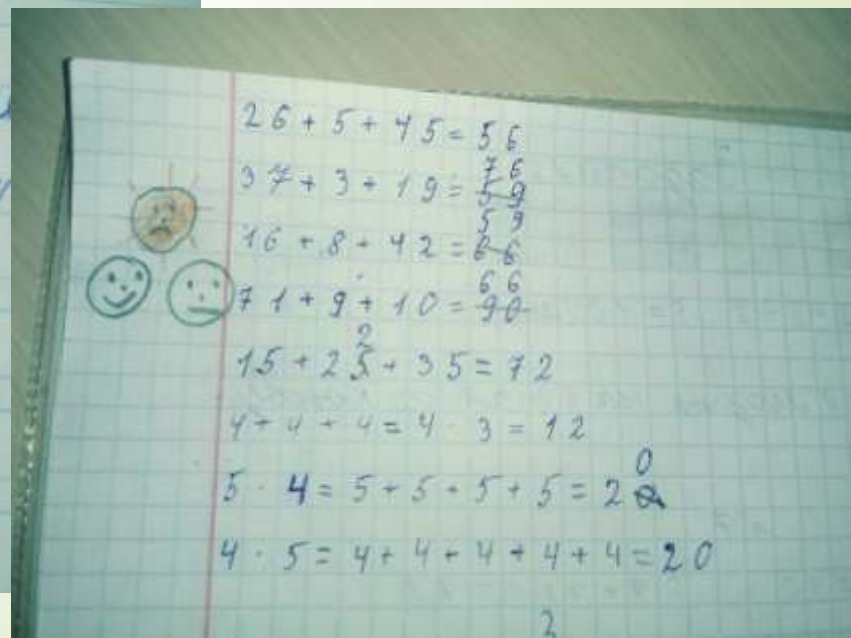 26 + 5 + 45 = 56
76
37 + 3 + 19 = 59
59
16 + 8 + 42 = 66
66
71 + 9 + 10 = 90
2
15 + 25 + 35 = 72
4 + 4 + 4 = 4 · 3 = 12
0
5 · 4 = 5 + 5 + 5 + 5 = 2
4 · 5 = 4 + 4 + 4 + 4 + 4 = 20
2